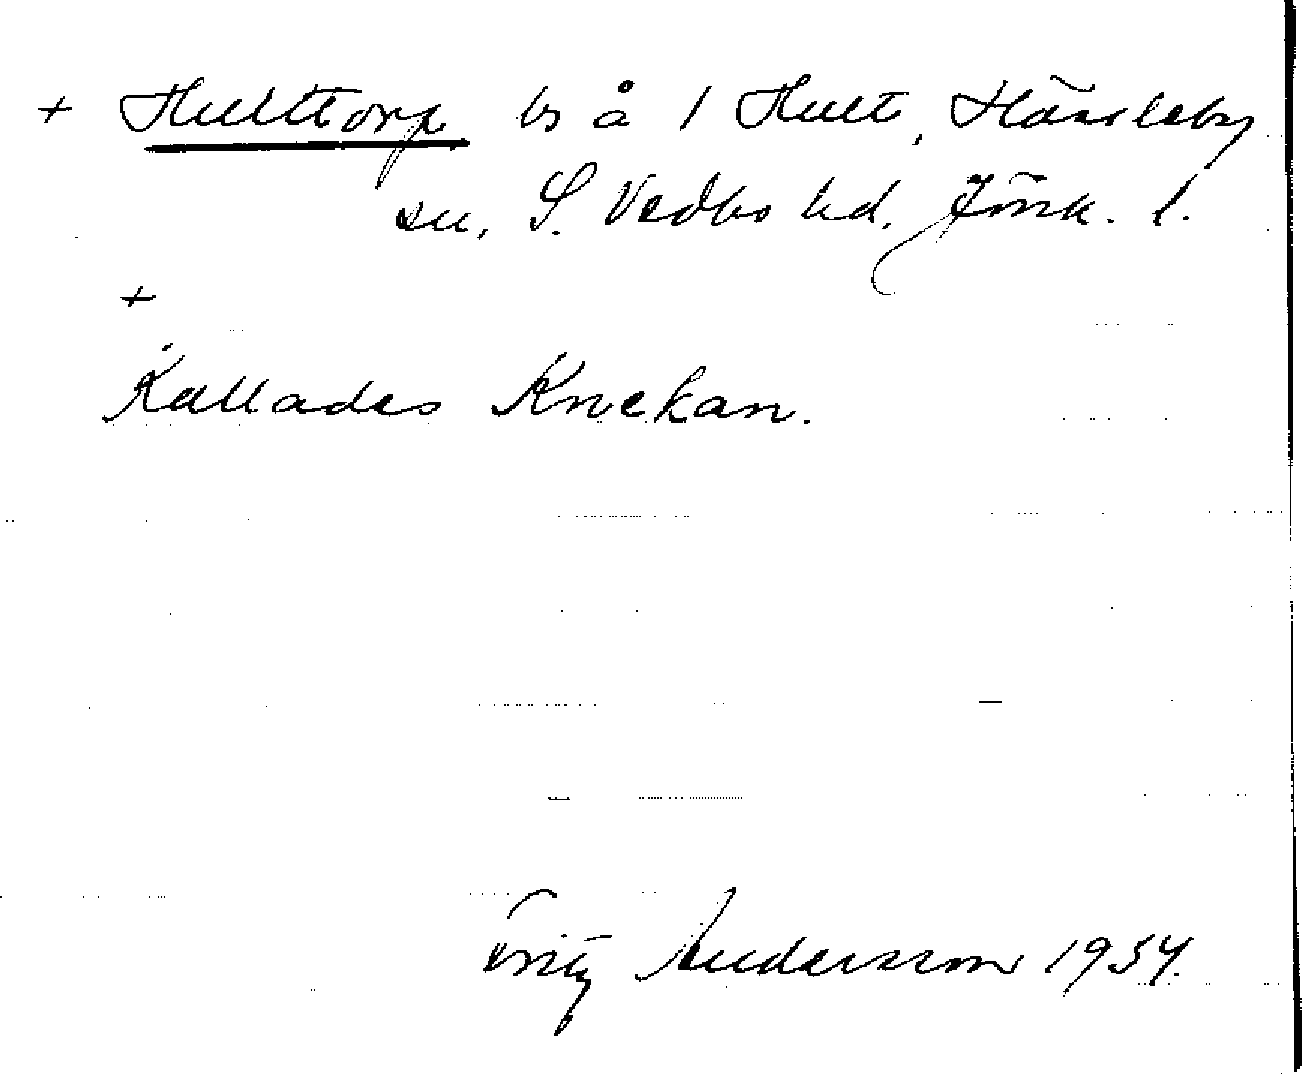 + Hulttorp bs å 1 Hult, Hässleby
sn, S. Vedbo hd. Jönk. l.
+
Kallades Knekan.
Fritz Andersson 1954.